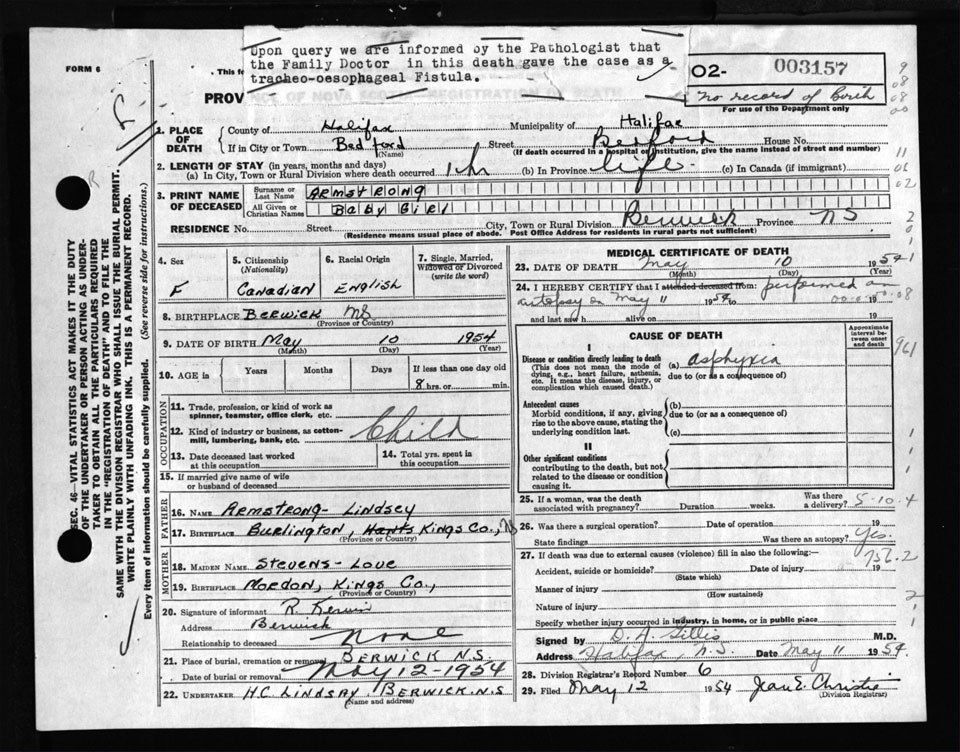 Upon query we are informed by the Pathologist that
the Family Doctor in this death gave the case as a
tracheo-oesophageal Fistula.
FORM 6
This f
PROV
NCE OF NOVA SCOTIA—REGISTRATION OF DEATH
O2- 003157
no record of Birth
For use of the Department only
1. PLACE OF DEATH
County of Halifax Municipality of Halifax
If in City or Town Bedford (Name) Street Bedford House No.
(If death occurred in a hospital or institution, give the name instead of street and number)
2. LENGTH OF STAY (in years, months and days)
(a) In City, Town or Rural Division where death occurred 1 hr (b) In Province life (c) In Canada (if immigrant)
3. PRINT NAME OF DECEASED
Surname or Last Name ARMSTRONG
All Given or Christian Names Baby Girl
RESIDENCE No. Street City, Town or Rural Division Berwick Province NS
(Residence means usual place of abode. Post Office Address for residents in rural parts not sufficient)
4. Sex F
5. Citizenship (Nationality) Canadian
6. Racial Origin English
7. Single, Married, Widowed or Divorced (write the word)
8. BIRTHPLACE BERWICK NS
(Province or Country)
9. DATE OF BIRTH May 10 1954
(Month) (Day) (Year)
10. AGE in Years Months Days If less than one day old
8 hrs. or min.
OCCUPATION
11. Trade, profession, or kind of work as spinner, teamster, office clerk, etc.
12. Kind of industry or business, as cotton-mill, lumbering, bank, etc. Child
13. Date deceased last worked at this occupation
14. Total yrs. spent in this occupation
15. If married give name of wife or husband of deceased
FATHER
16. NAME ARMSTRONG- LINDSEY
17. BIRTHPLACE BURLINGTON, Hants KINGS CO., NS
(Province or Country)
MOTHER
18. MAIDEN NAME STEVENS- LOVE
19. BIRTHPLACE MORDON, KINGS CO.,
(Province or Country)
20. Signature of informant R. Kerwin
Address Berwick
Relationship to deceased None
21. Place of burial, cremation or removal BERWICK N.S.
Date of burial or removal May 12-1954
22. UNDERTAKER H.C. LINDSAY. BERWICK.N.S
(Name and address)
MEDICAL CERTIFICATE OF DEATH
23. DATE OF DEATH May 10 1954
(Month) (Day) (Year)
24. I HEREBY CERTIFY that I attended deceased from: performed an
autopsy on May 11 1954 to 19
and last saw h alive on 19
CAUSE OF DEATH
Approximate interval between onset and death
I
Disease or condition directly leading to death
(This does not mean the mode of dying, e.g., heart failure, asthenia, etc. It means the disease, injury, or complication which caused death.)
(a) asphyxia
due to (or as a consequence of)
Antecedent causes
Morbid conditions, if any, giving rise to the above cause, stating the underlying condition last.
(b)
due to (or as a consequence of)
(c)
II
Other significant conditions
contributing to the death, but not related to the disease or condition causing it.
25. If a woman, was the death associated with pregnancy? Duration weeks. Was there a delivery?
26. Was there a surgical operation? Date of operation 19
State findings Was there an autopsy? Yes.
27. If death was due to external causes (violence) fill in also the following:
Accident, suicide or homicide? Date of injury 19
(State which)
Manner of injury
(How sustained)
Nature of injury
Specify whether injury occurred in industry, in home, or in public place
Signed by D. A. Gillis M.D.
Address Halifax, N.S. Date May 11 1954
28. Division Registrar's Record Number 6
29. Filed May 12 1954 Jean E. Christie
(Division Registrar)
SEC. 46—VITAL STATISTICS ACT MAKES IT THE DUTY
OF THE UNDERTAKER OR PERSON ACTING AS UNDER-
TAKER TO OBTAIN ALL THE PARTICULARS REQUIRED
IN THE "REGISTRATION OF DEATH" AND TO FILE THE
SAME WITH THE DIVISION REGISTRAR WHO SHALL ISSUE THE BURIAL PERMIT.
WRITE PLAINLY WITH UNFADING INK. THIS IS A PERMANENT RECORD.
Every item of information should be carefully supplied. (See reverse side for instructions.)
11
06
02
961
5-10-4
756.2